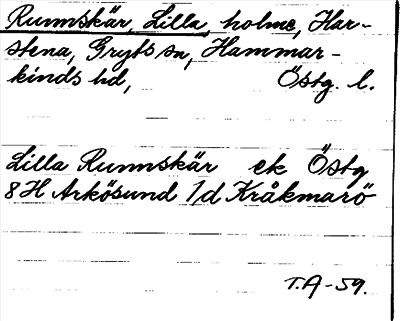 Runnskär, Lilla, holme, Har-
stena, Gryts sn, Hammar-
kinds hd, Östg. l.
Lilla Runnskär ek Östg
8H Arkösund 1/d Kråkmarö
T.A-59.